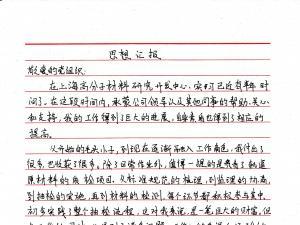 思想汇报
敬爱的党组织:
在上海高分子材料研究开发中心实习已近有半年时
间了。在这段时间内,承蒙公司领导以及其他同事的帮助、关心
和支持,我的工作得到了巨大的进展,自身素质也得到了相应的
提高。
从开始的毛头小子,到现在逐渐融入工作角色,我付出了
很多,也收获了很多。除了日常作业外,值得一提的是参与了
原材料的质检项目。从标准规范的整理,到监理的协商,
到抽检的实施,再到材料的检测,每个环节都积极参与其中,
初步实践了整个抽检流程,这对我来说,是一笔巨大的财富,但